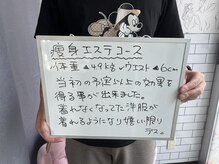 痩身エステコース
体重 ▲4.9kg ウエスト ▲6cm
当初の予定以上の効果を
得る事が出来ました。
着れなくなってた洋服が
着れるようになり嬉しい限り
デス。